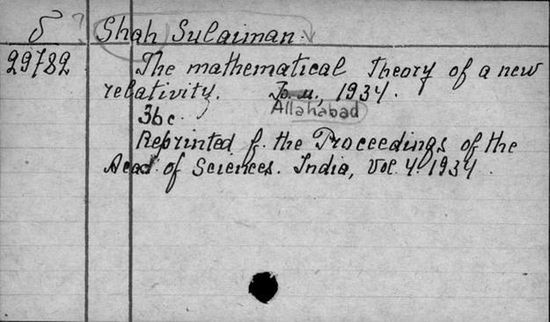 δ ? Shah Sulaiman.
29782 The mathematical Theory of a new
relativity. 1934.
Allahabad
36c.
Reprinted f. the Proceedings of the
Acad. of Sciences. India, Vol. 4. 1934.